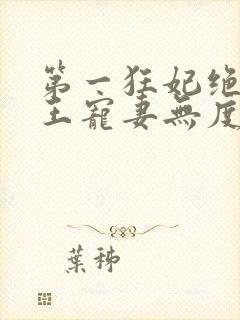 第一狂妃绝
王寵妻無度
葉稀